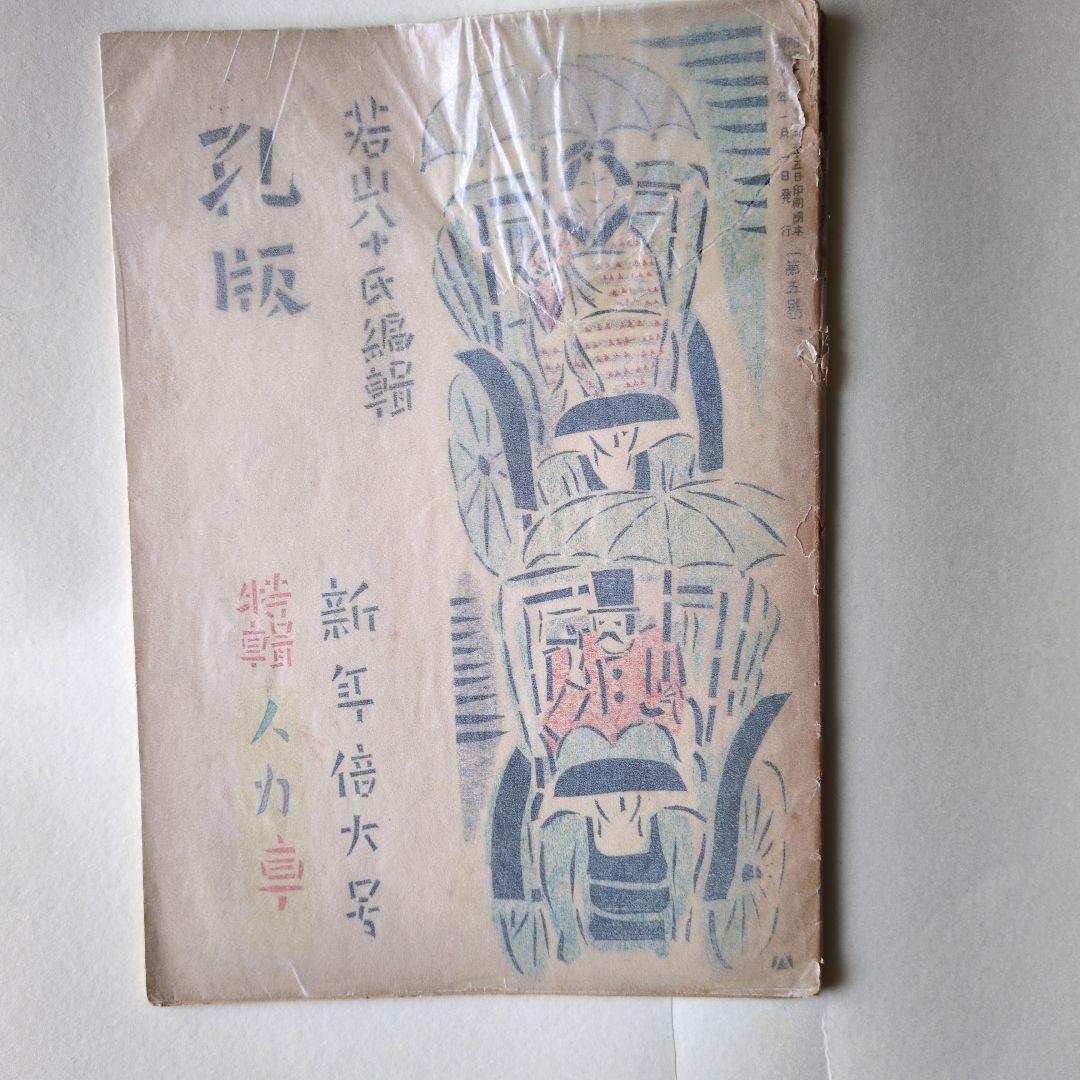 年一月一日発行
五日印刷納本
(第五號)
若山八十氏編輯
孔版
新年倍大号
特輯 人力車